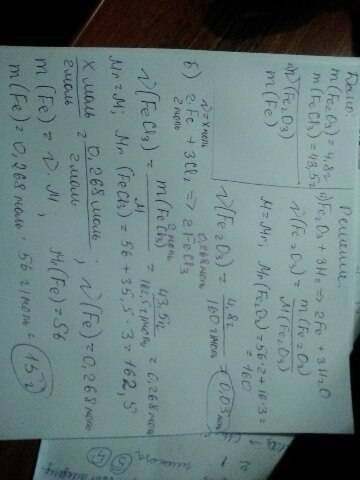 Дано:
m(Fe₂O₃) = 4,8г
m(FeCl₃) = 43,5г
ν(Fe₂O₃)
m(Fe)
Решение:
а) Fe₂O₃ + 3H₂ => 2Fe + 3H₂O
ν(Fe₂O₃) = m(Fe₂O₃) / M(Fe₂O₃)
M = Mr; Mr(Fe₂O₃) = 56·2 + 16·3 =
= 160
ν(Fe₂O₃) = 4,8г / 160 г/моль = 0,03 моль
ν = x моль 0,268 моль
б) 2Fe + 3Cl₂ => 2FeCl₃
2 моль 2 моль
ν(FeCl₃) = m(FeCl₃) / M = 43,5г / 162,5 г/моль = 0,268 моль
Mr = M; Mr(FeCl₃) = 56 + 35,5·3 = 162,5
x моль / 2 моль = 0,268 моль / 2 моль; ν(Fe) = 0,268 моль
m(Fe) = ν·M, Mr(Fe) = 56
m(Fe) = 0,268 моль · 56 г/моль = 15г